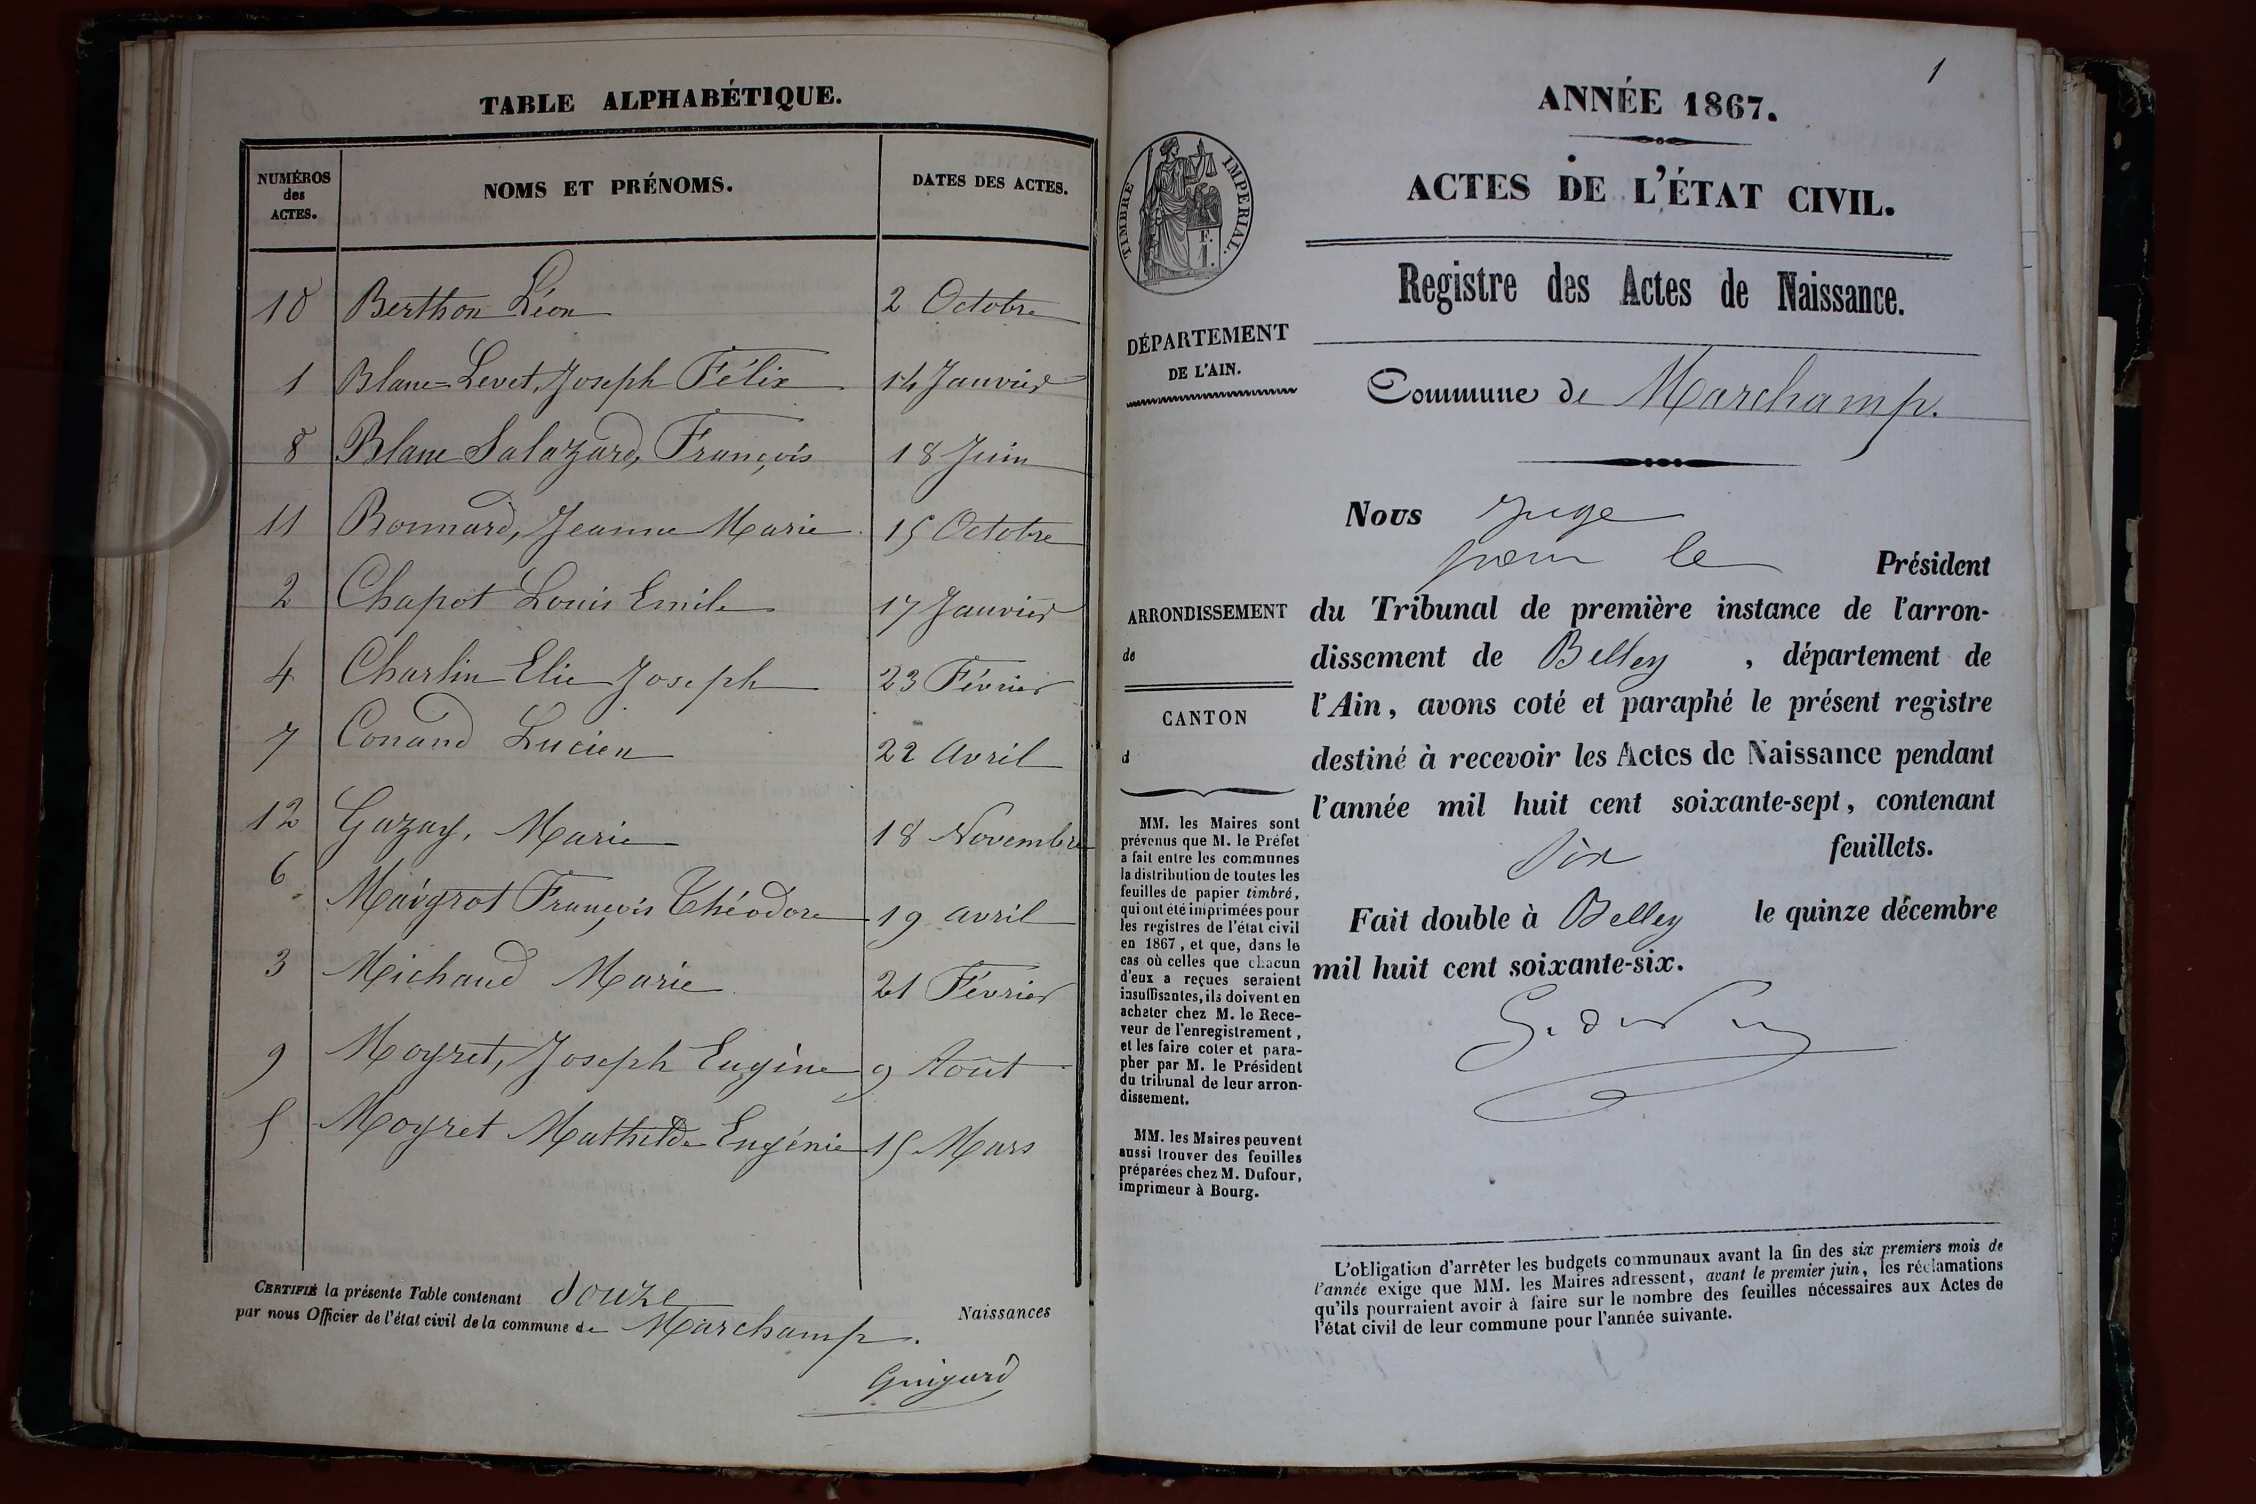 TABLE ALPHABÉTIQUE.
NUMÉROS des ACTES. NOMS ET PRÉNOMS. DATES DES ACTES.
10 Berthon Léon 2 Octobre
1 Blanc=Levet, Joseph Félix 14 Janvier
8 Blanc Salazard, François 18 Juin
11 Bonnard, Jeanne Marie 15 Octobre
2 Chapot Louis Emile 17 Janvier
4 Charlin Elie Joseph 23 Février
7 Conand Lucien 22 Avril
12 Gazay, Marie 18 Novembre
6 Maigrot François Théodore 19 avril
3 Michaud Marie 21 Février
9 Moyret, Joseph Eugène 9 Août
5 Moyret Mathilde Eugénie 15 Mars
CERTIFIÉ la présente Table contenant douze Naissances
par nous Officier de l'état civil de la commune de Marchamp.
Guigard
1
ANNÉE 1867.
ACTES DE L'ÉTAT CIVIL.
TIMBRE IMPÉRIAL.
F.
1.
Registre des Actes de Naissance.
DÉPARTEMENT
DE L'AIN.
Commune de Marchamp.
ARRONDISSEMENT
de
CANTON
d
MM. les Maires sont
prévenus que M. le Préfet
a fait entre les communes
la distribution de toutes les
feuilles de papier timbré,
qui ont été imprimées pour
les registres de l'état civil
en 1867, et que, dans le
cas où celles que chacun
d'eux a reçues seraient
insuffisantes, ils doivent en
acheter chez M. le Rece-
veur de l'enregistrement,
et les faire coter et para-
pher par M. le Président
du tribunal de leur arron-
dissement.
MM. les Maires peuvent
aussi trouver des feuilles
préparées chez M. Dufour,
imprimeur à Bourg.
Nous Juge
pour le Président
du Tribunal de première instance de l'arron-
dissement de Belley, département de
l'Ain, avons coté et paraphé le présent registre
destiné à recevoir les Actes de Naissance pendant
l'année mil huit cent soixante-sept, contenant
six feuillets.
Fait double à Belley le quinze décembre
mil huit cent soixante-six.
L'obligation d'arrêter les budgets communaux avant la fin des six premiers mois de
l'année exige que MM. les Maires adressent, avant le premier juin, les réclamations
qu'ils pourraient avoir à faire sur le nombre des feuilles nécessaires aux Actes de
l'état civil de leur commune pour l'année suivante.